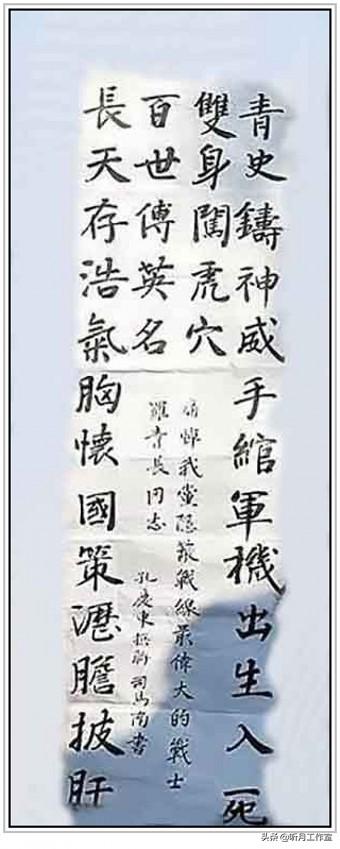 青史鑄神威手綰軍機出生入死
雙身闖虎穴
百世傳英名
長天存浩氣胸懷國策瀝膽披肝
痛悼我黨隱蔽戰線最偉大的戰士
羅青長同志
孔慶東撰聯 司馬南書
头条@昕月工作室